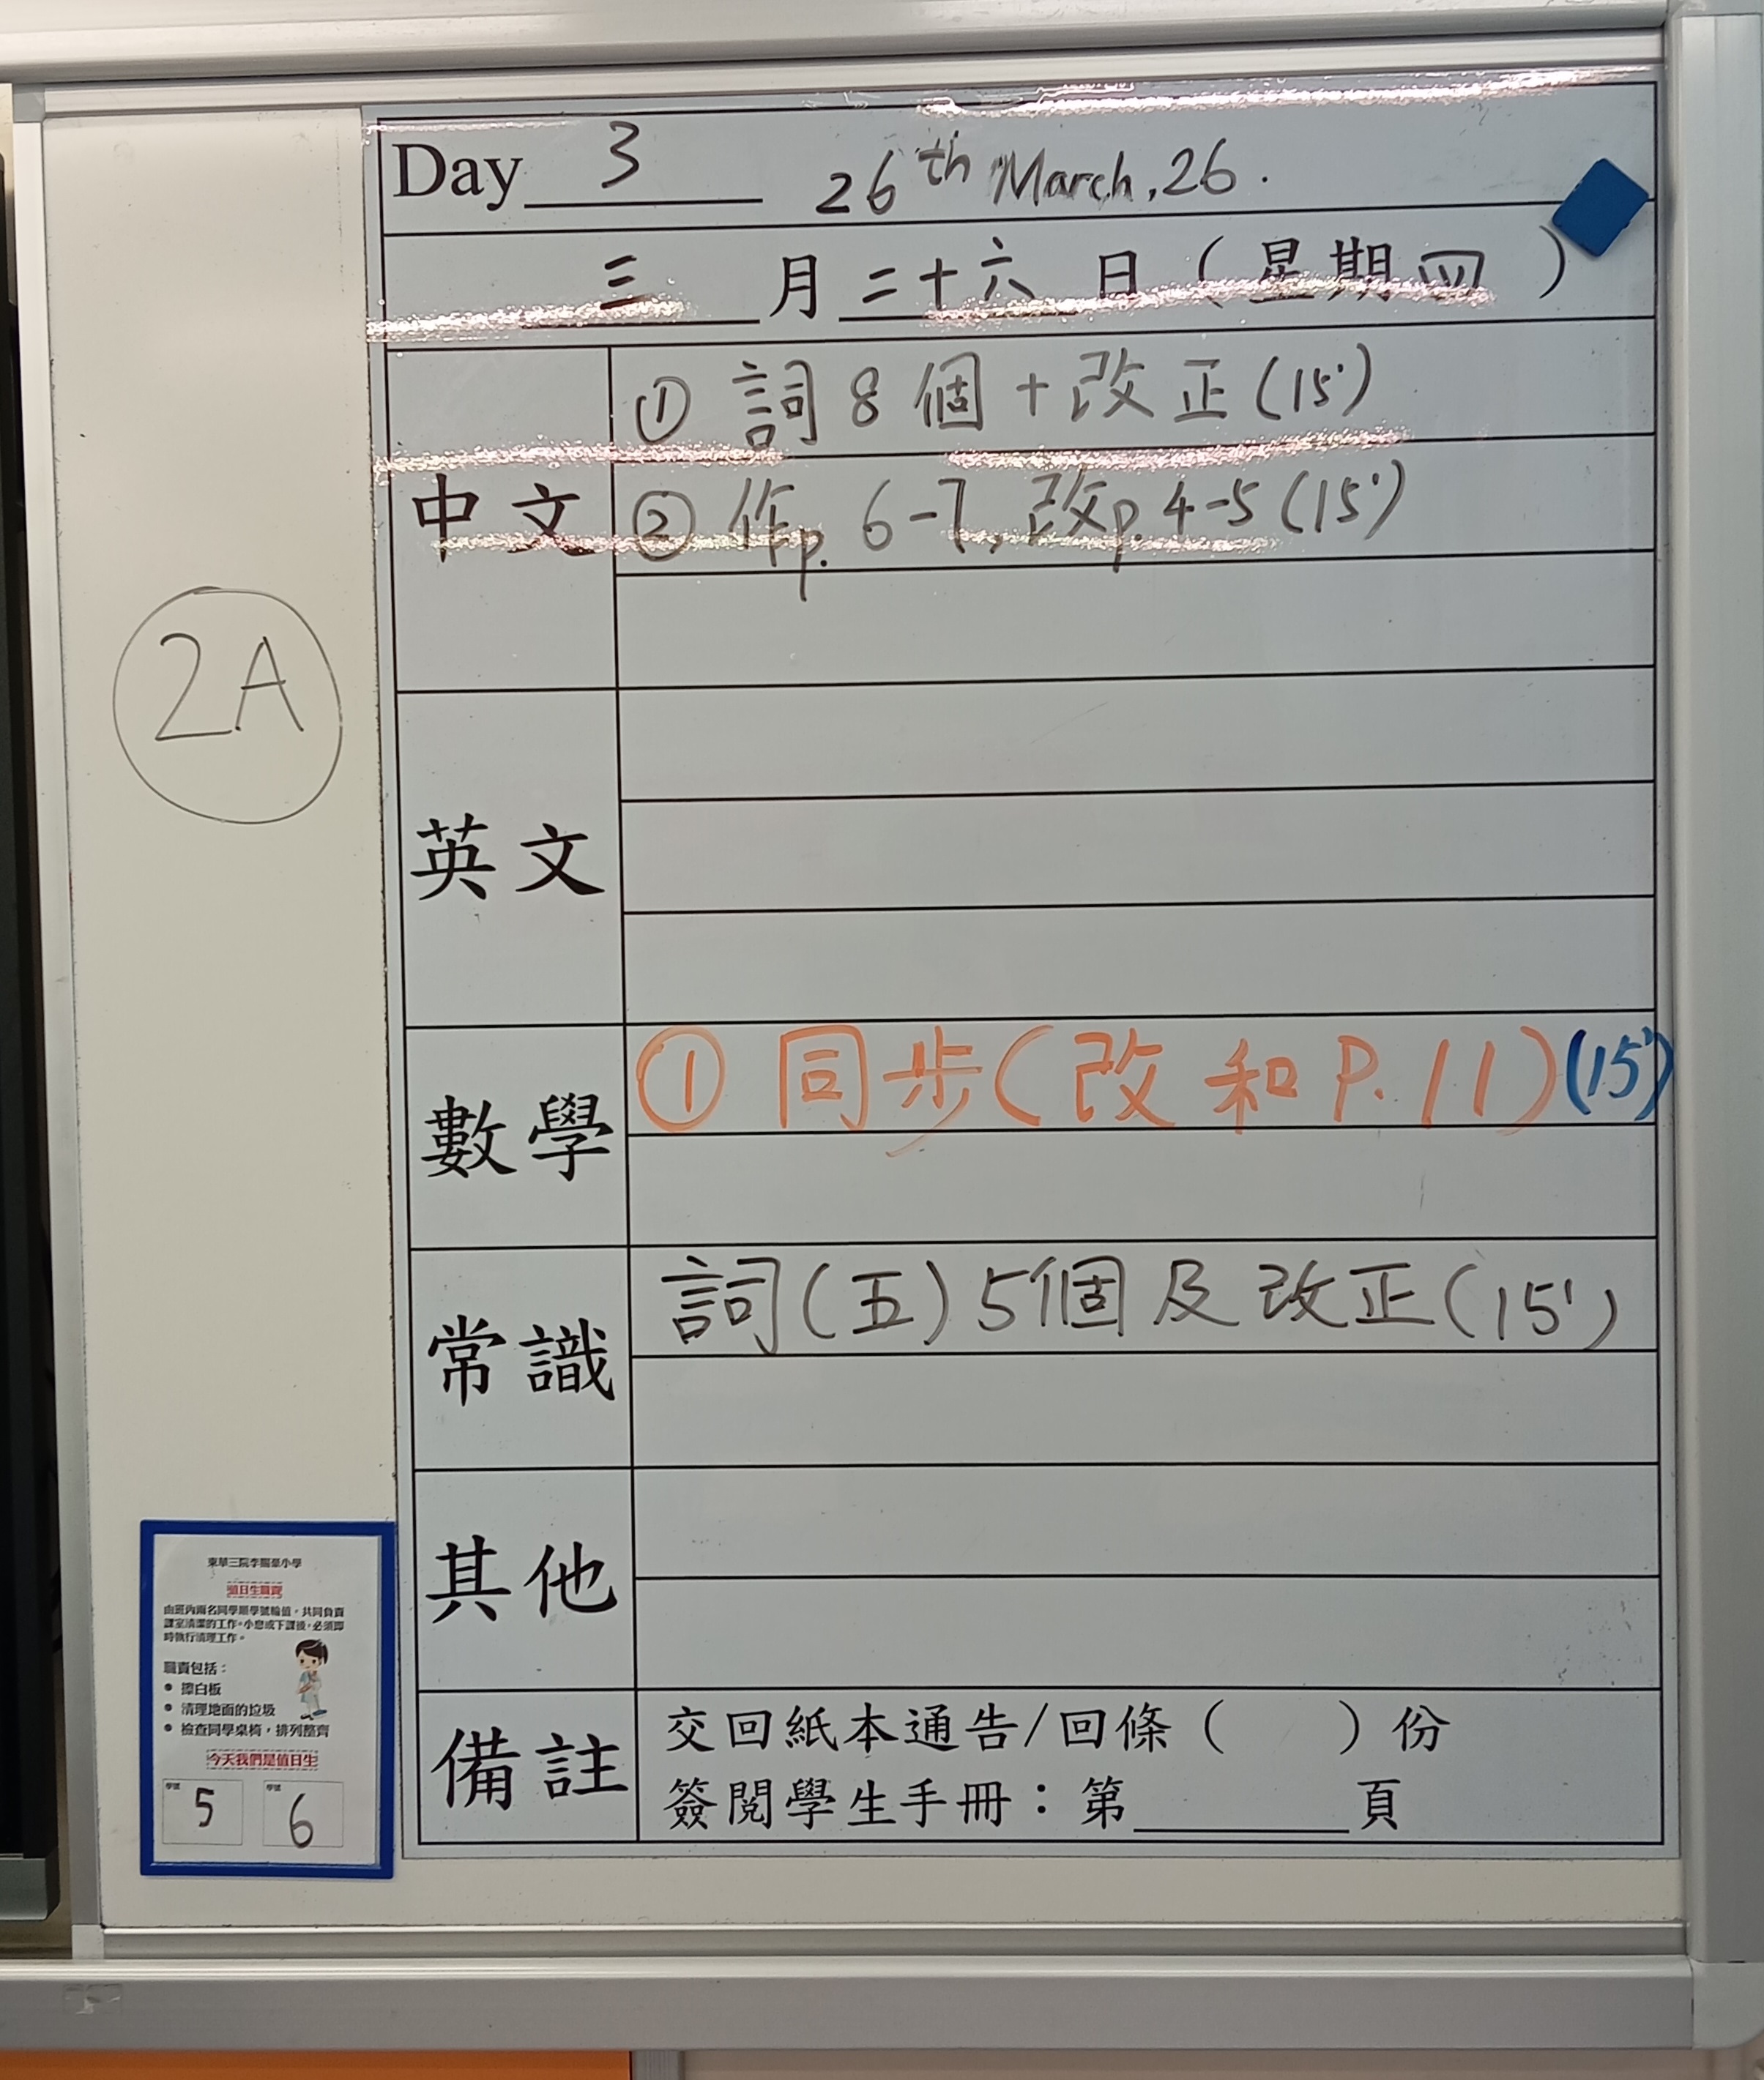 Day 3 26th March, 26.
三 月 二十六 日 (星期四)
中文
① 詞 8 個 + 改正 (15')
② 作p. 6-7, 改p. 4-5 (15')
2A
英文
數學
① 同步 (改和 P. 11) (15')
常識
詞 (五) 5個 及 改正 (15')
其他
備註
交回紙本通告/回條 ( ) 份
簽閱學生手冊：第 頁
值日生職責
由班內兩名同學順學號輪值，共同負責
課室清潔的工作。小息或下課後，必須即
時執行清理工作。
職責包括：
• 擦白板
• 清理地面的垃圾
• 檢查同學桌椅，排列整齊
今天我們是值日生
學號 5 學號 6